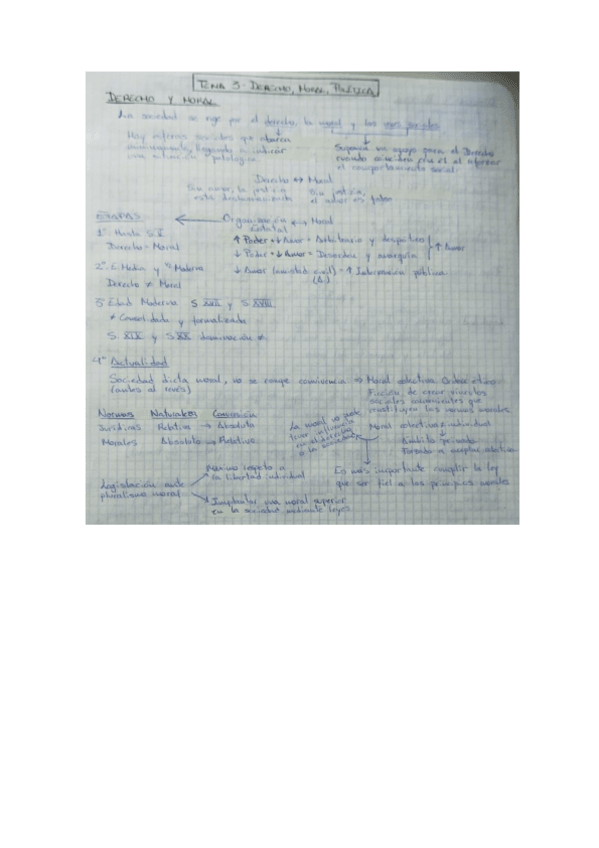 TEMA 3 - DERECHO, MORAL, POLÍTICA
DERECHO Y MORAL
La sociedad se rige por el derecho, la moral y los usos sociales
Hay esferas sociales que abarcan
llegando a indicar
una situación patológica
Supone un apoyo para el Derecho
cuando coinciden con él al reforzar
el comportamiento social
Derecho ↔ Moral
Sin amor, la justicia
está deshumanizada
Sin justicia,
el amor es falso
ETAPAS
Organización ↔ Moral
Estatal
1ª Hasta S.X
Derecho = Moral
↑ Poder + ↓ Amor = Arbitrario y despótico
↓ Poder + ↓ Amor = Discordia y anarquía
↑ Amor
2ª E. Media y Moderna
Derecho ≠ Moral
↓ Amor (amistad civil) = ↑ Intervención pública
3ª Edad Moderna S XVII y S XVIII
≠ Consolidada y formalizada
S. XIX y S XX ≠
4ª Actualidad
Sociedad dicta moral, no se rompe convivencia → Moral colectiva Orden ético
(antes al revés)
Ficción de crear vínculos
sociales convenientes que
constituyen las normas morales
Normas Naturales Convención
Jurídicas Relativo → Absoluto
Morales Absoluto → Relativo
La moral no puede
tener influencia
en el derecho
a la sociedad
Moral colectiva ≠ individual
Ámbito privado
Forzado a aceptar colectiva
Es más importante cumplir la ley
que ser fiel a los principios morales
Legislación ante
pluralismo moral
Máximo respeto a
la libertad individual
Implantar una moral superior
en la sociedad mediante leyes